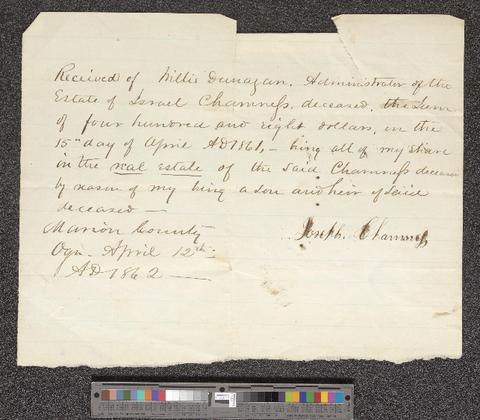 Received of Willis Dunagan. Administrator of the
Estate of Israel Chamness, deceased, the Sum
of four hundred and eight dollars, on the
15th day of April AD 1861, – being all of my share
in the real estate of the said Chamness deceased
by reason of my being a son and heir of said
deceased —
Marion County
Ogn. April 12th
AD 1862 —
Joseph Chamness